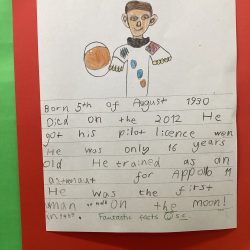 Born 5th of August 1930
Died on the 2012 He
got his pilot licence wen
He was only 16 years
old He trained as an
astronaut for Appollo 11
He was the first
man to walk on the moon!
in 1969.
Fantastic facts